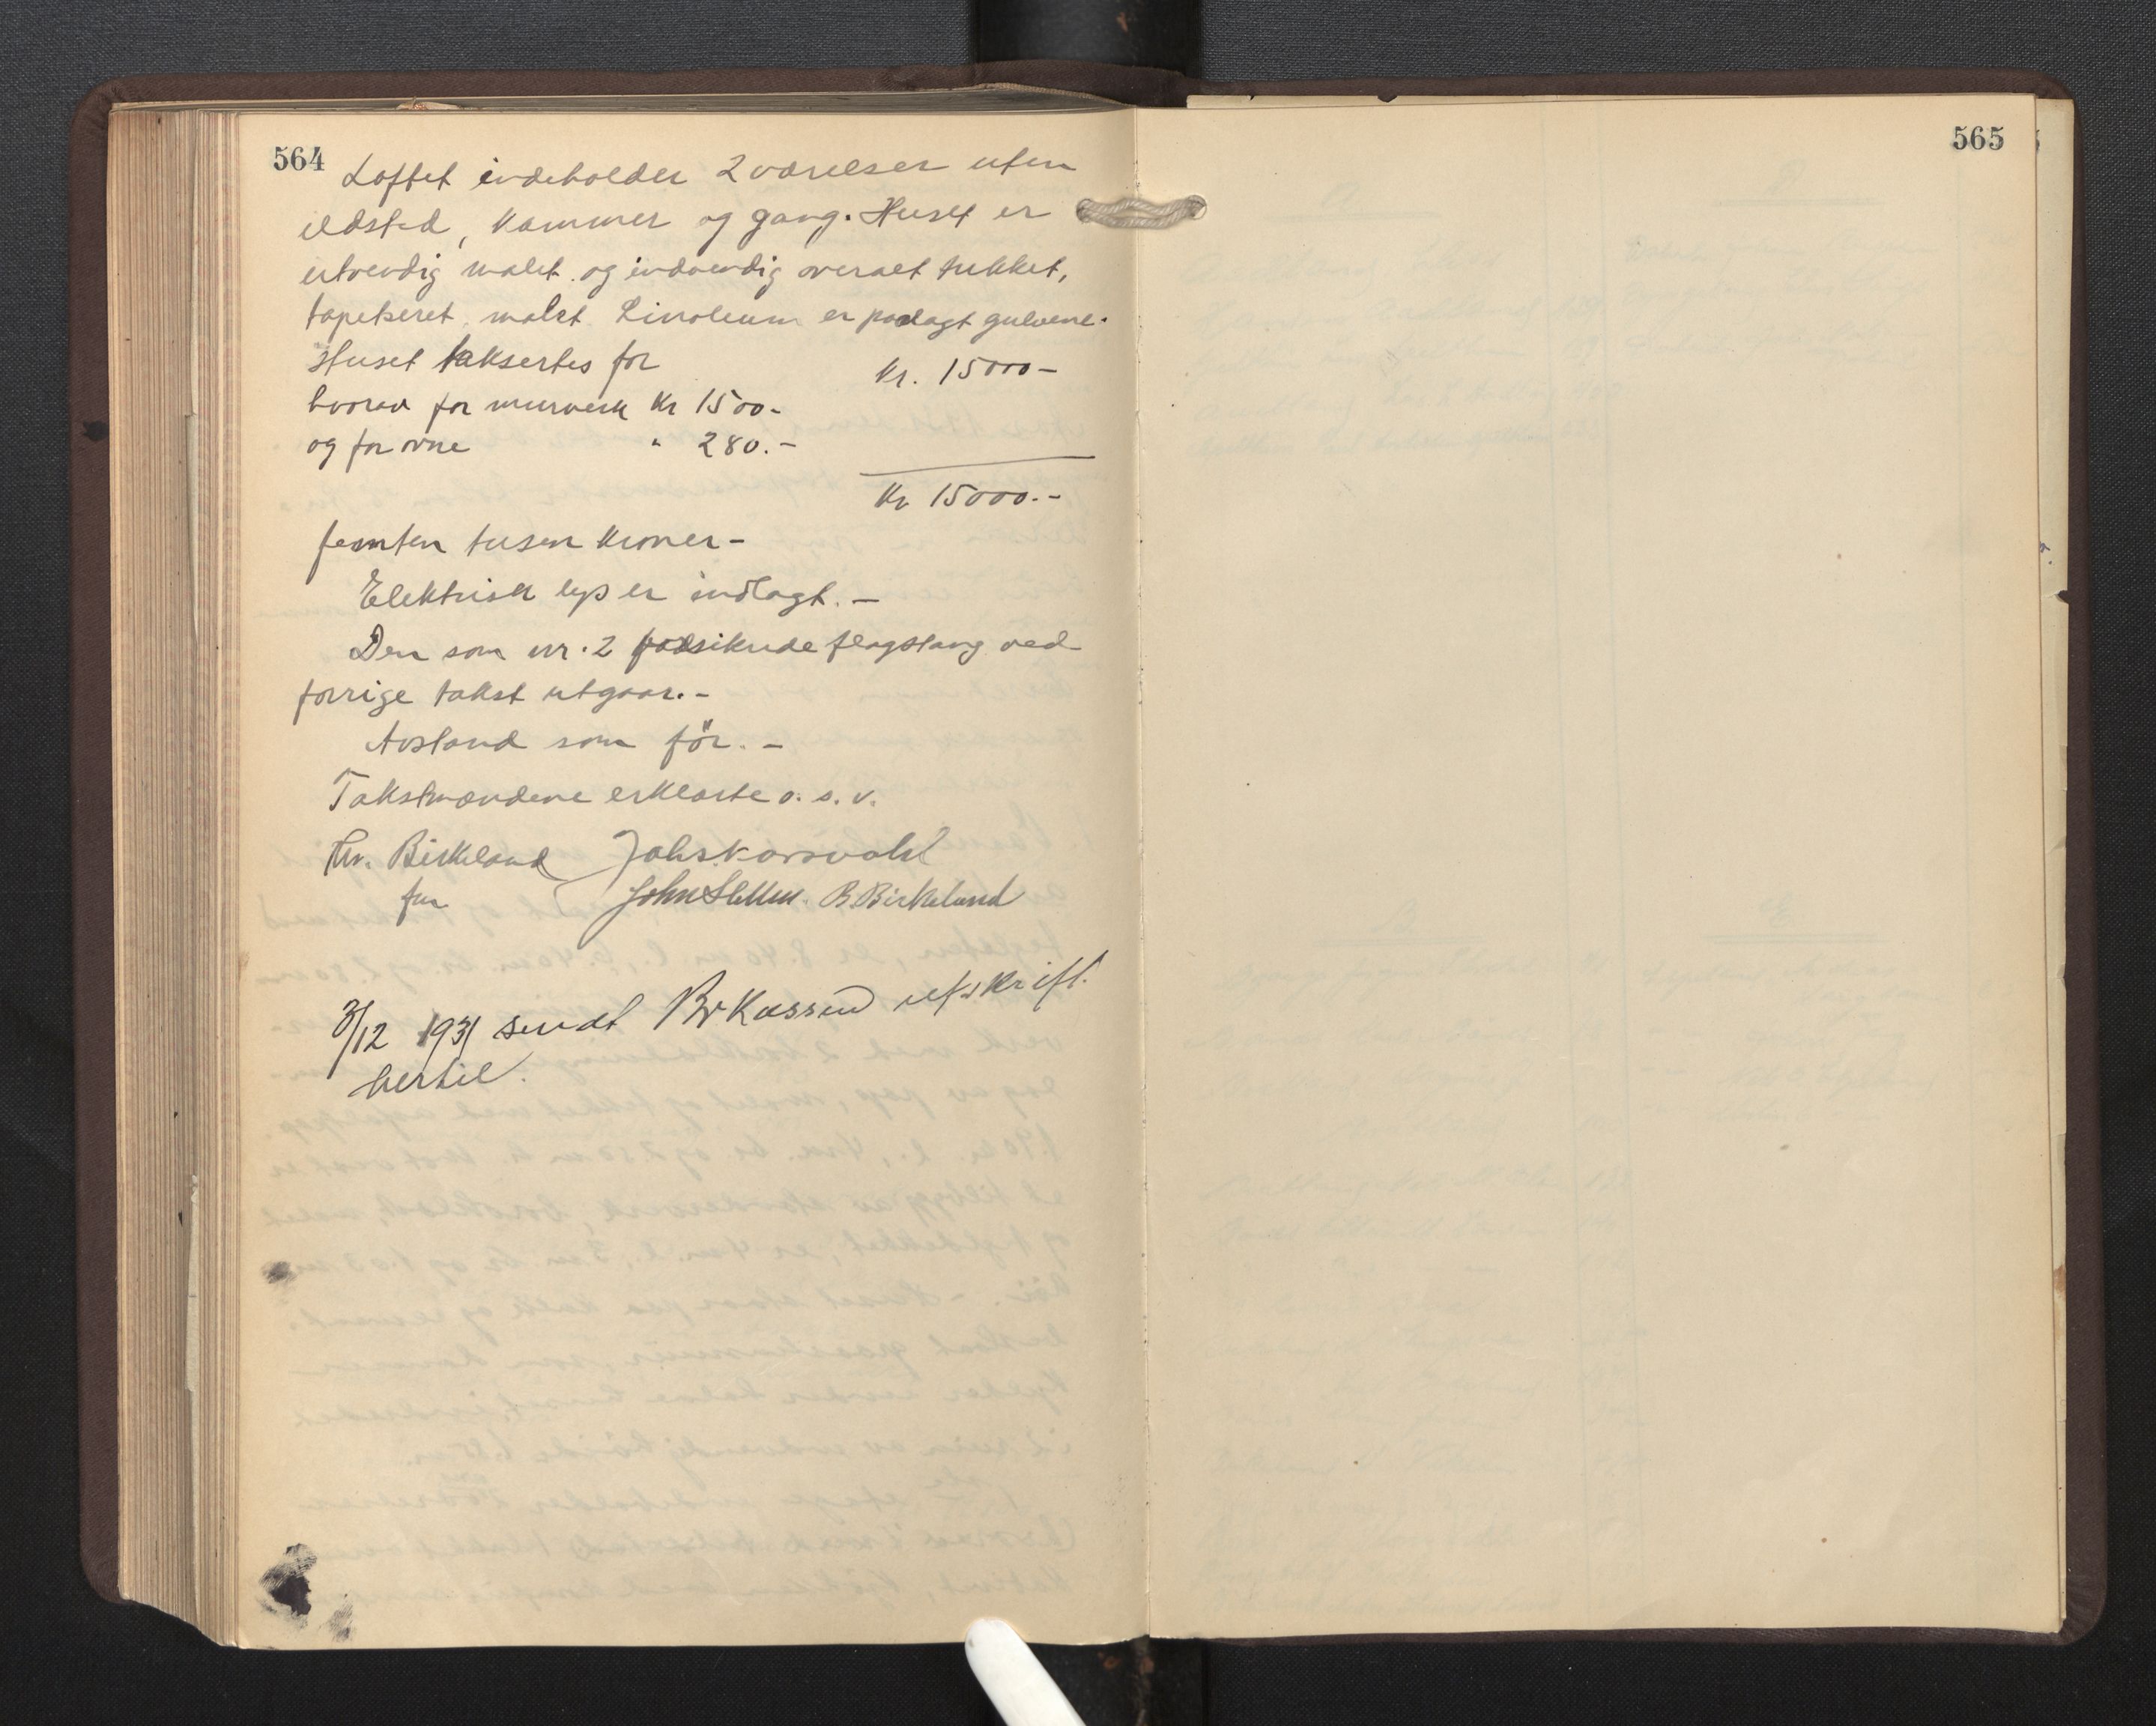 564
Loftet indeholder 2 værelser uten
ildsted, kammer og gang. Huset er
utvendig malet og indvendig overalt trukket,
tapetseret, malet. Linoleum er paalagt gulvene.
Huset taksertes for kr. 15000-
hvorav for murverk kr 1500.-
og for ovne " 280.-
Kr 15000.-
femten tusen kroner-
Elektrisk lys er indlagt. -
Den som nr. 2 forsikrede flagstang ved
forrige takst utgaar. -
Avstand som før. -
Takstmændene erklærte o. s. v.
Birkeland Joh. Skorsvold
for John B. Birkeland
3/12 1931 sendt Br Kassen utskrift
hertil.
565